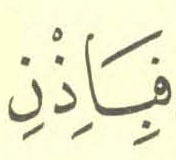 فَبِاِذْنِ